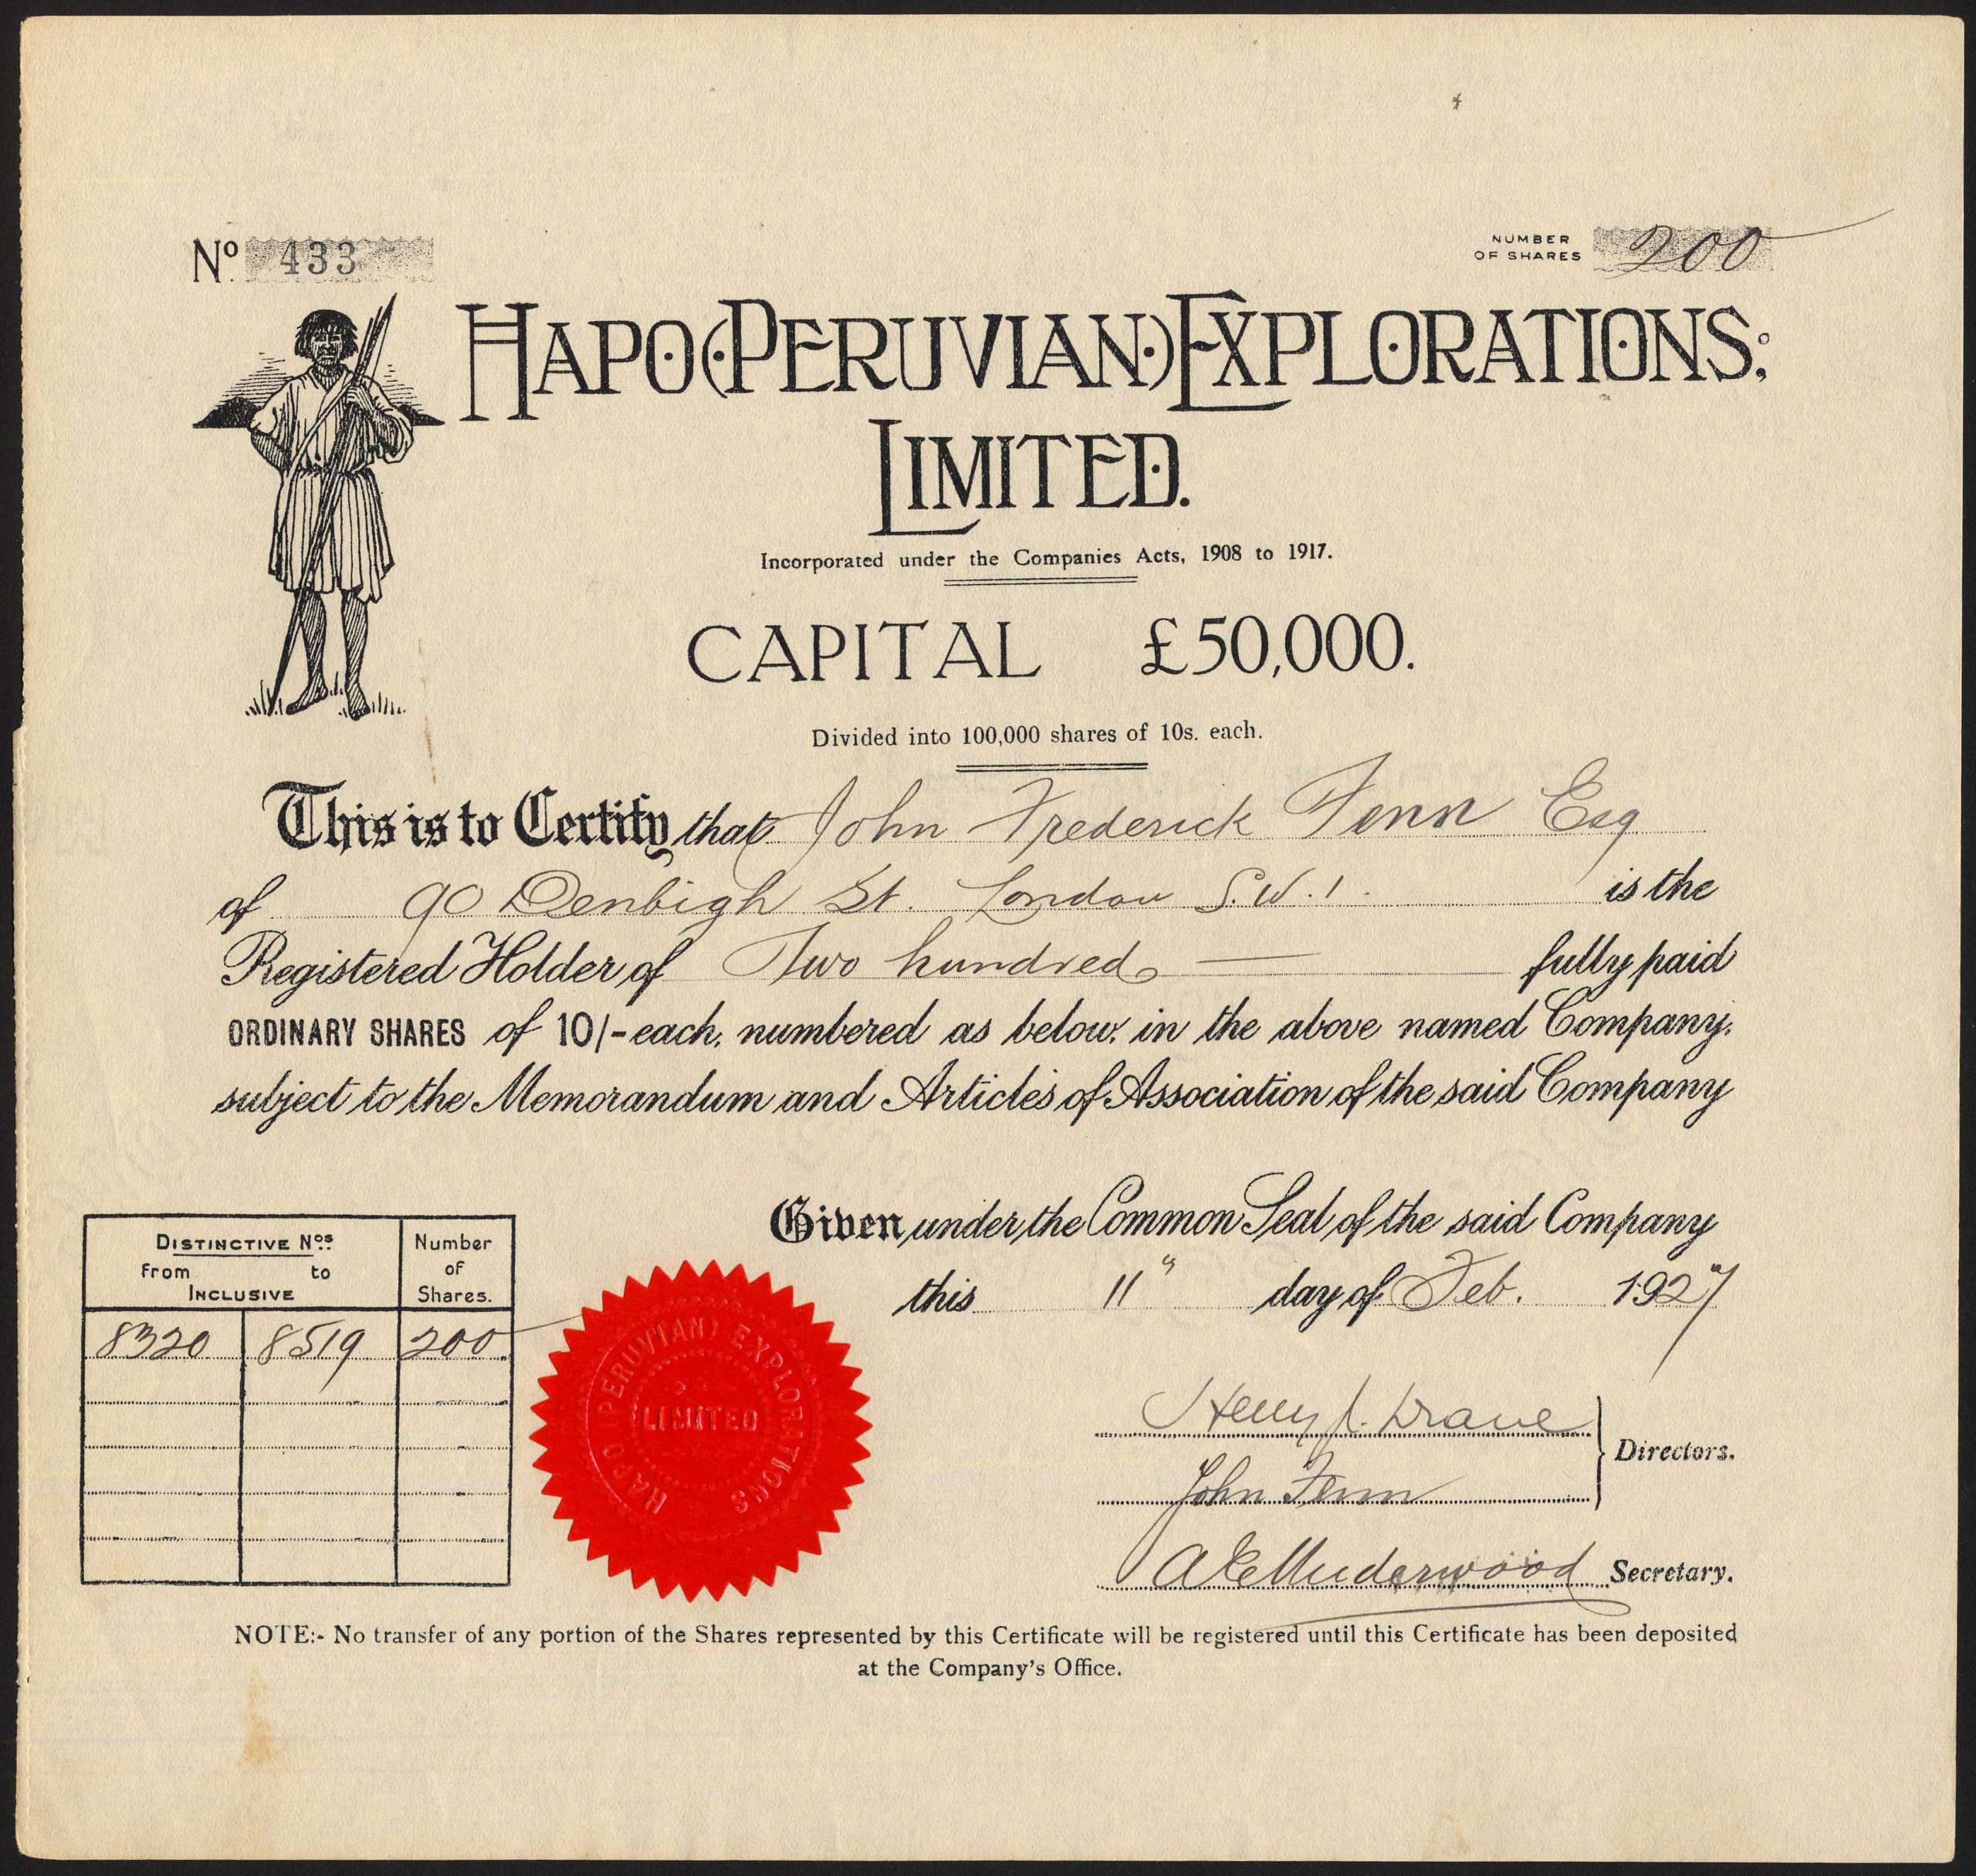 No 433
NUMBER
OF SHARES 200
HAPO (PERUVIAN) EXPLORATIONS,
LIMITED.
Incorporated under the Companies Acts, 1908 to 1917.
CAPITAL £50,000.
Divided into 100,000 shares of 10s. each.
This is to Certify that John Frederick Fenn Esq
of 90 Denbigh St. London S.W.1. is the
Registered Holder of Two hundred fully paid
ORDINARY SHARES of 10/- each, numbered as below, in the above named Company,
subject to the Memorandum and Articles of Association of the said Company
Given under the Common Seal of the said Company
this 11" day of Feb. 1927
DISTINCTIVE Nos.
From to
INCLUSIVE
Number
of
Shares.
8320 8519 200
HAPO (PERUVIAN) EXPLORATIONS
LIMITED
Henry J. Drane
John Fenn
Directors.
Underwood Secretary.
NOTE:- No transfer of any portion of the Shares represented by this Certificate will be registered until this Certificate has been deposited
at the Company's Office.